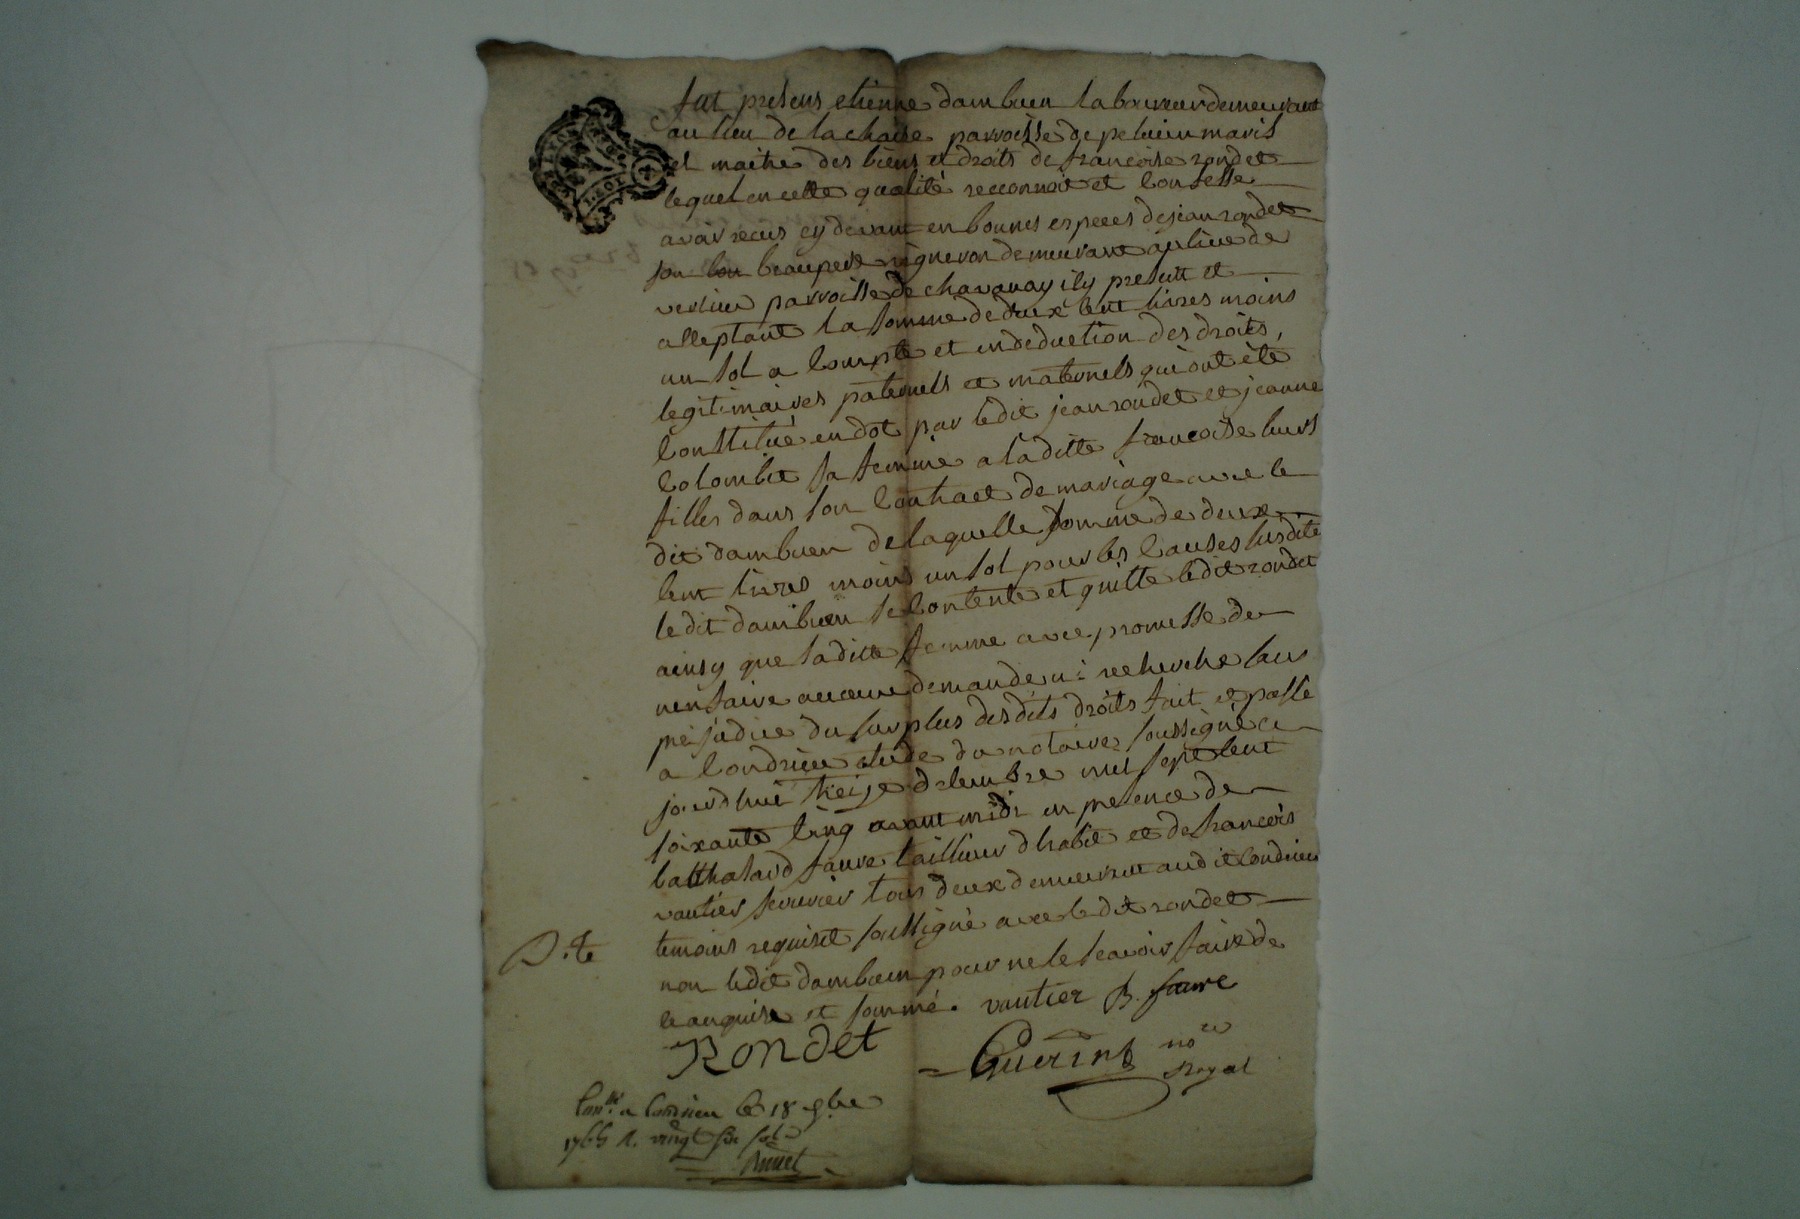 fut présens etienne dambuen laboureur demeurant
au lieu de la chaise parroisse de peluieu maris
et maitre des biens et droits de francoise rondet
lequel en cette qualité reconnoit et confesse
avoir recus cy devant en bonnes especes de jean rondet
son beaupere vigneron demeurant au lieu de
verlieu parroisse de chavanay icy present et
acceptant la somme de deux cent livres moins
un sol a compte et en deduction des droits
legitimaires paternels et maternels qui ont été
constitué en dot par ledit jean rondet et jeanne
colombet sa femme a laditte francoise leurs
filles dans son contract de mariage avec le
dit dambuen de laquelle somme de deux
cent livres moins un sol pour les causes susdite
ledit dambuen se contente et quitte ledit rondet
ainsy que saditte femme avec promesse de
nen faire aucune demande ni recherche sans
prejudice du surplus desdits droits fait et passé
a Condrieu etude du notaire soussigné ce
jourdhui treize decembre mil sept cent
soixante cinq avant midi en presence de
balthasard faure tailleur dhabit et de francois
vautier serurier tous deux demeurant audit Condrieu
temoins requiset soussigné avec ledit rondet
non ledit dambuen pour ne le scavoir faire de
ce enquise et sommé. vautier B. faure
Rondet
Guérin no.re
Royal
Con.llé a Condrieu le 18 Xbre
1765 R. vingt six sols